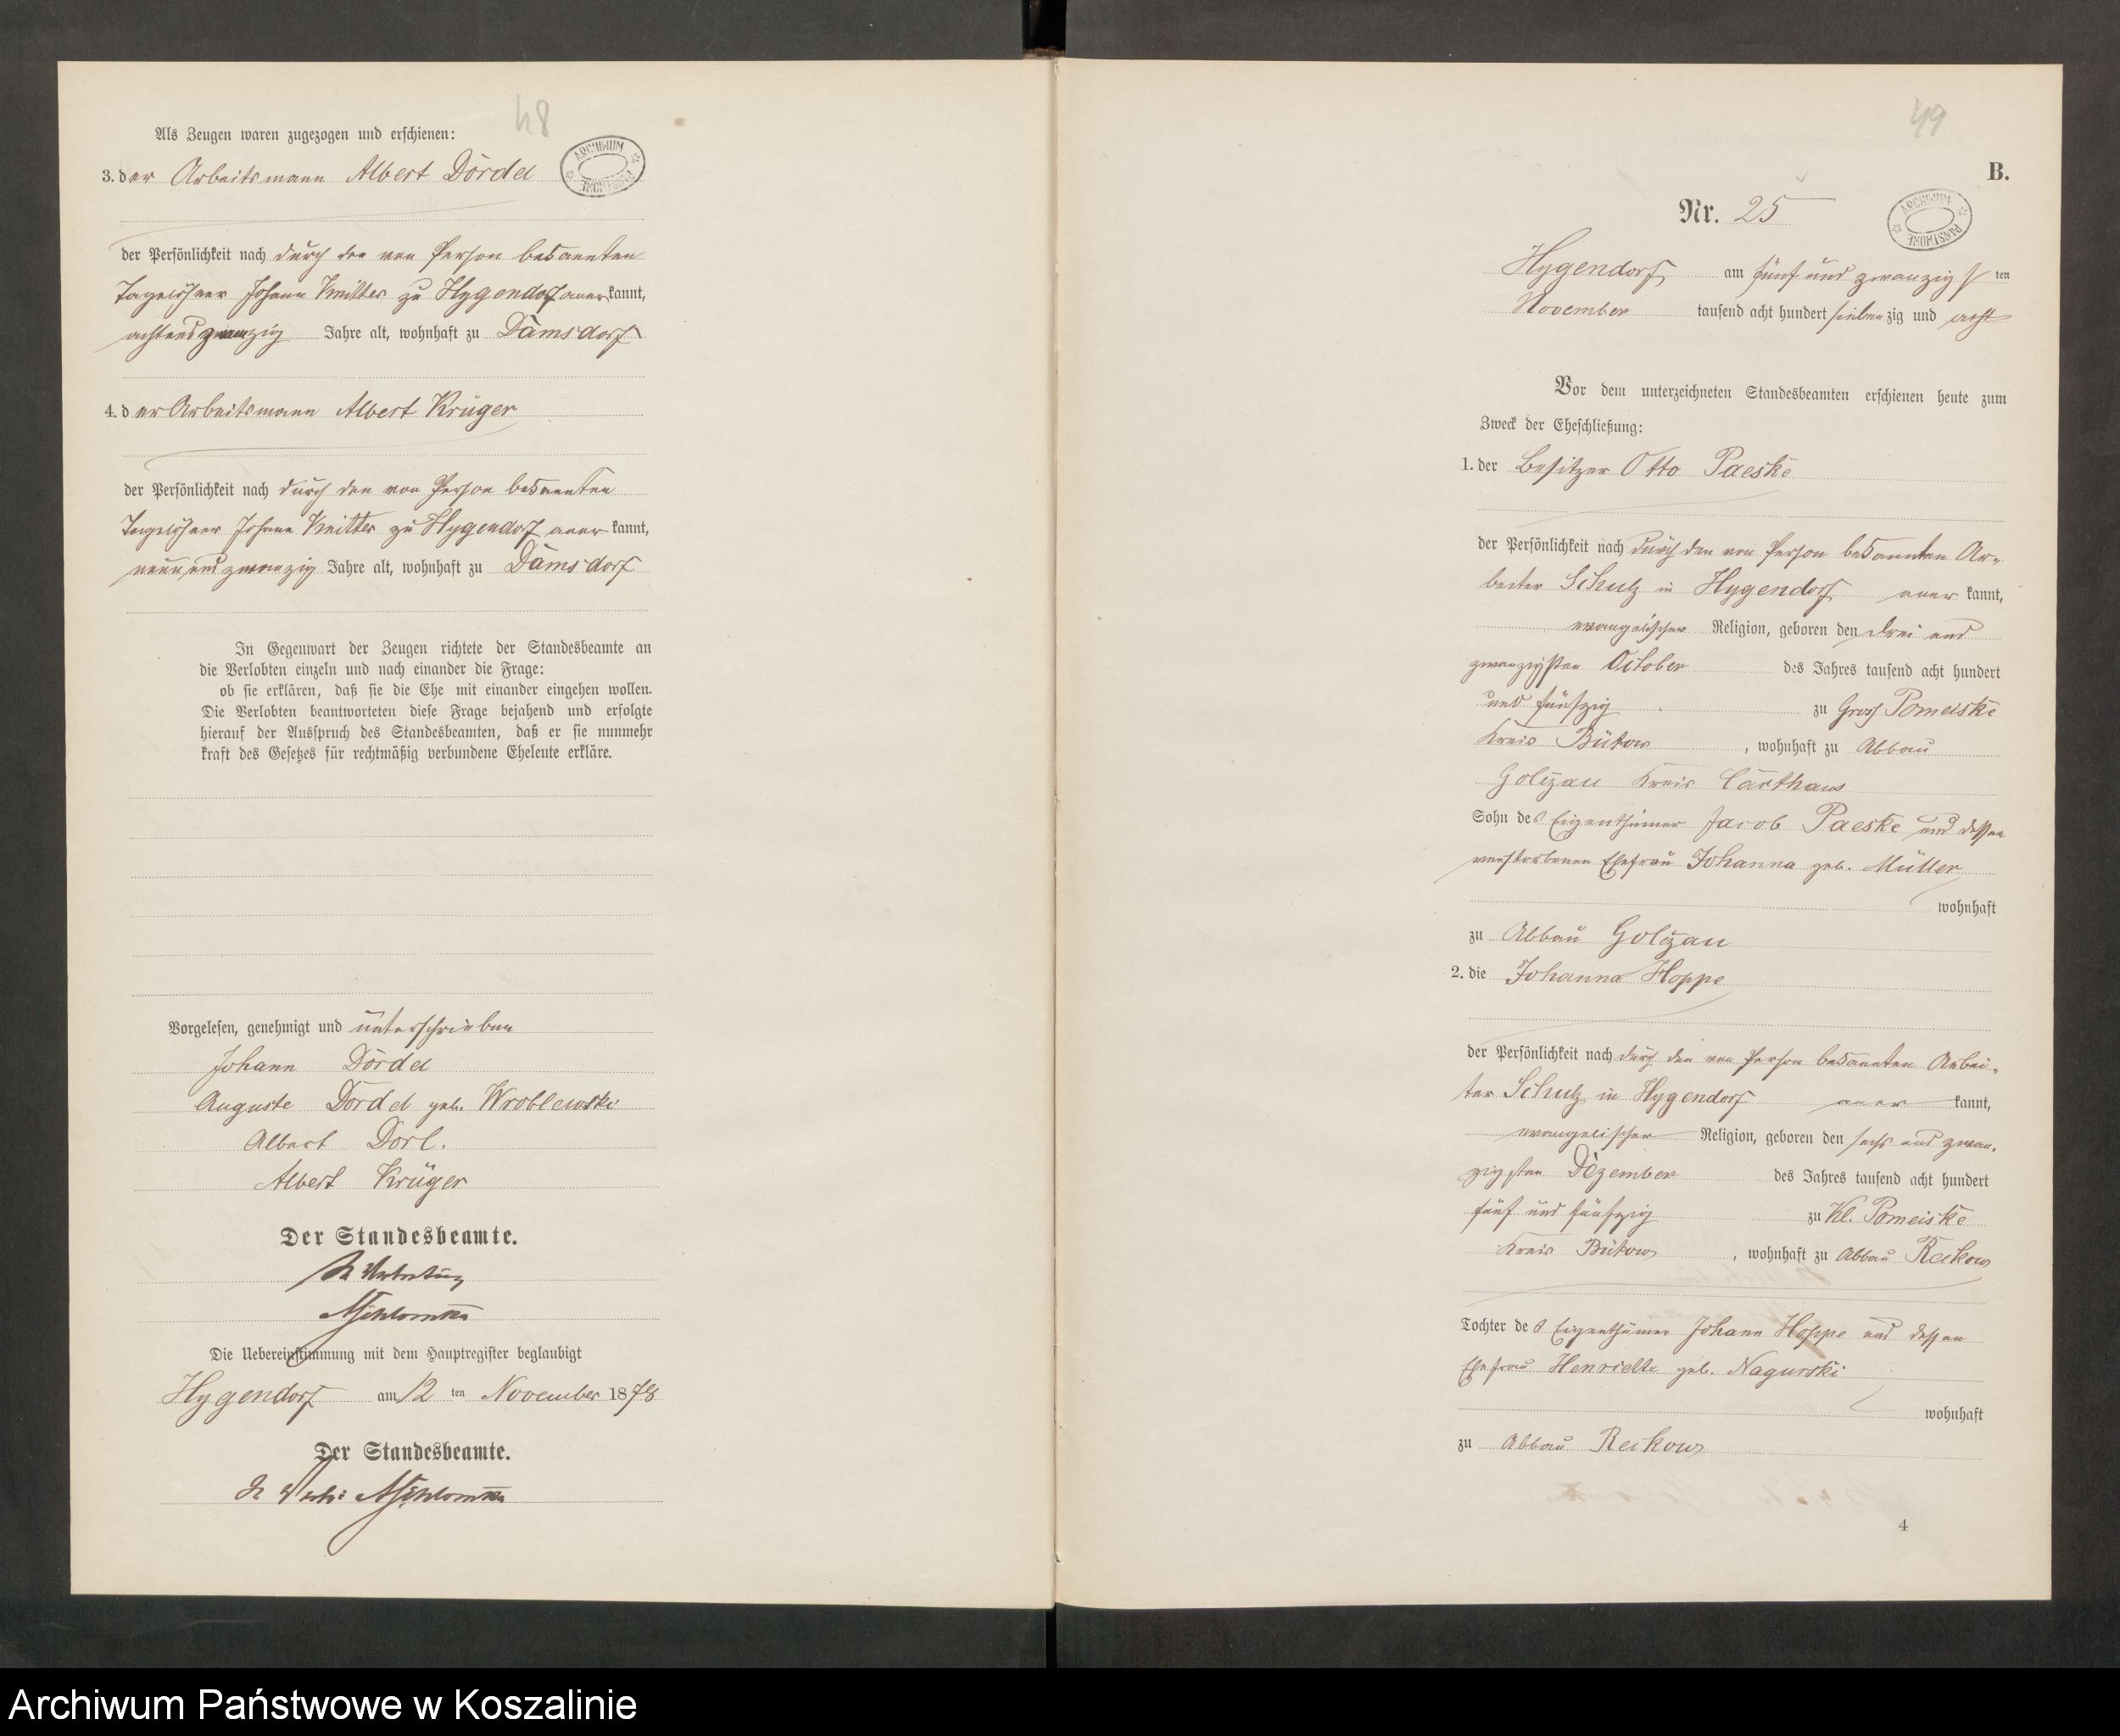 48
Als Zeugen waren zugezogen und erschienen:
3. der Arbeitsmann Albert Dördel
ARCHIWUM PAŃSTWOWE
der Persönlichkeit nach durch den von Person bekannten
Tagelöhner Johann Knitter zu Hygendorf anerkannt,
achtundzwanzig Jahre alt, wohnhaft zu Damsdorf
4. der Arbeitsmann Albert Krüger
der Persönlichkeit nach durch den von Person bekannten
Tagelöhner Johann Knitter zu Hygendorf anerkannt,
neun und zwanzig Jahre alt, wohnhaft zu Damsdorf
In Gegenwart der Zeugen richtete der Standesbeamte an
die Verlobten einzeln und nach einander die Frage:
ob sie erklären, daß sie die Ehe mit einander eingehen wollen.
Die Verlobten beantworteten diese Frage bejahend und erfolgte
hierauf der Ausspruch des Standesbeamten, daß er sie nunmehr
kraft des Gesetzes für rechtmäßig verbundene Eheleute erkläre.
Vorgelesen, genehmigt und unterschrieben
Johann Dördel
Auguste Dördel geb. Wroblewski
Albert Dorl.
Albert Krüger
Der Standesbeamte.
In Vertretung
Die Uebereinstimmung mit dem Hauptregister beglaubigt
Hygendorf am 12 ten November 1878
Der Standesbeamte.
49
B.
Nr. 25
ARCHIWUM PAŃSTWOWE
Hygendorf am fünf und zwanzigs ten
November tausend acht hundert siebenzig und acht
Vor dem unterzeichneten Standesbeamten erschienen heute zum
Zweck der Eheschließung:
1. der Besitzer Otto Paeske
der Persönlichkeit nach durch den von Person bekannten Ar-
beiter Schulz in Hygendorf anerkannt,
evangelischer Religion, geboren den drei und
zwanzigsten October des Jahres tausend acht hundert
und fünfzig zu Gross Pomeiske
Kreis Bütow, wohnhaft zu Abbau
Golczau Kreis Carthaus
Sohn des Eigenthümer Jacob Paeske und dessen
verstorbenen Ehefrau Johanna geb. Müller
wohnhaft
zu Abbau Golczau
2. die Johanna Hoppe
der Persönlichkeit nach durch den von Person bekannten Arbei-
ter Schulz in Hygendorf anerkannt,
evangelischer Religion, geboren den sechs und zwan-
zigsten Dezember des Jahres tausend acht hundert
fünf und fünfzig zu Kl. Pomeiske
Kreis Bütow, wohnhaft zu Abbau Reckow
Tochter des Eigenthümer Johann Hoppe und dessen
Ehefrau Henriette geb. Nagurski
wohnhaft
zu Abbau Reckow
4
Archiwum Państwowe w Koszalinie